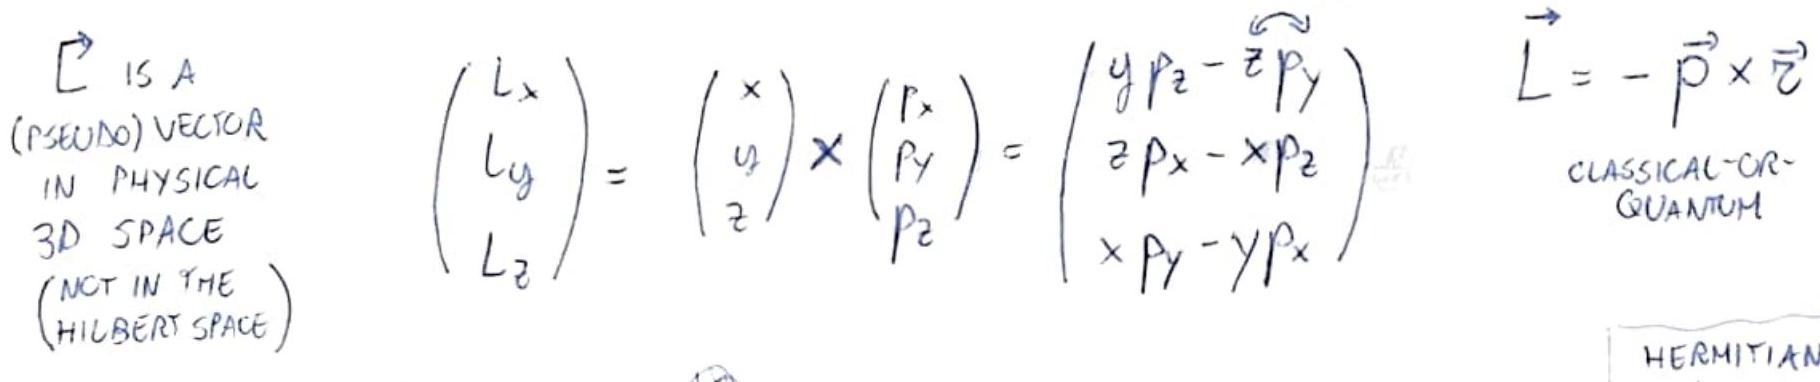 L⃗ IS A
(PSEUDO) VECTOR
IN PHYSICAL
3D SPACE
(NOT IN THE
HILBERT SPACE)
(Lx Ly Lz) = (x y z) × (px py pz) = (y pz - z py, z px - x pz, x py - y px)
L⃗ = - p⃗ × r⃗
CLASSICAL-OR-
QUANTUM
HERMITIAN